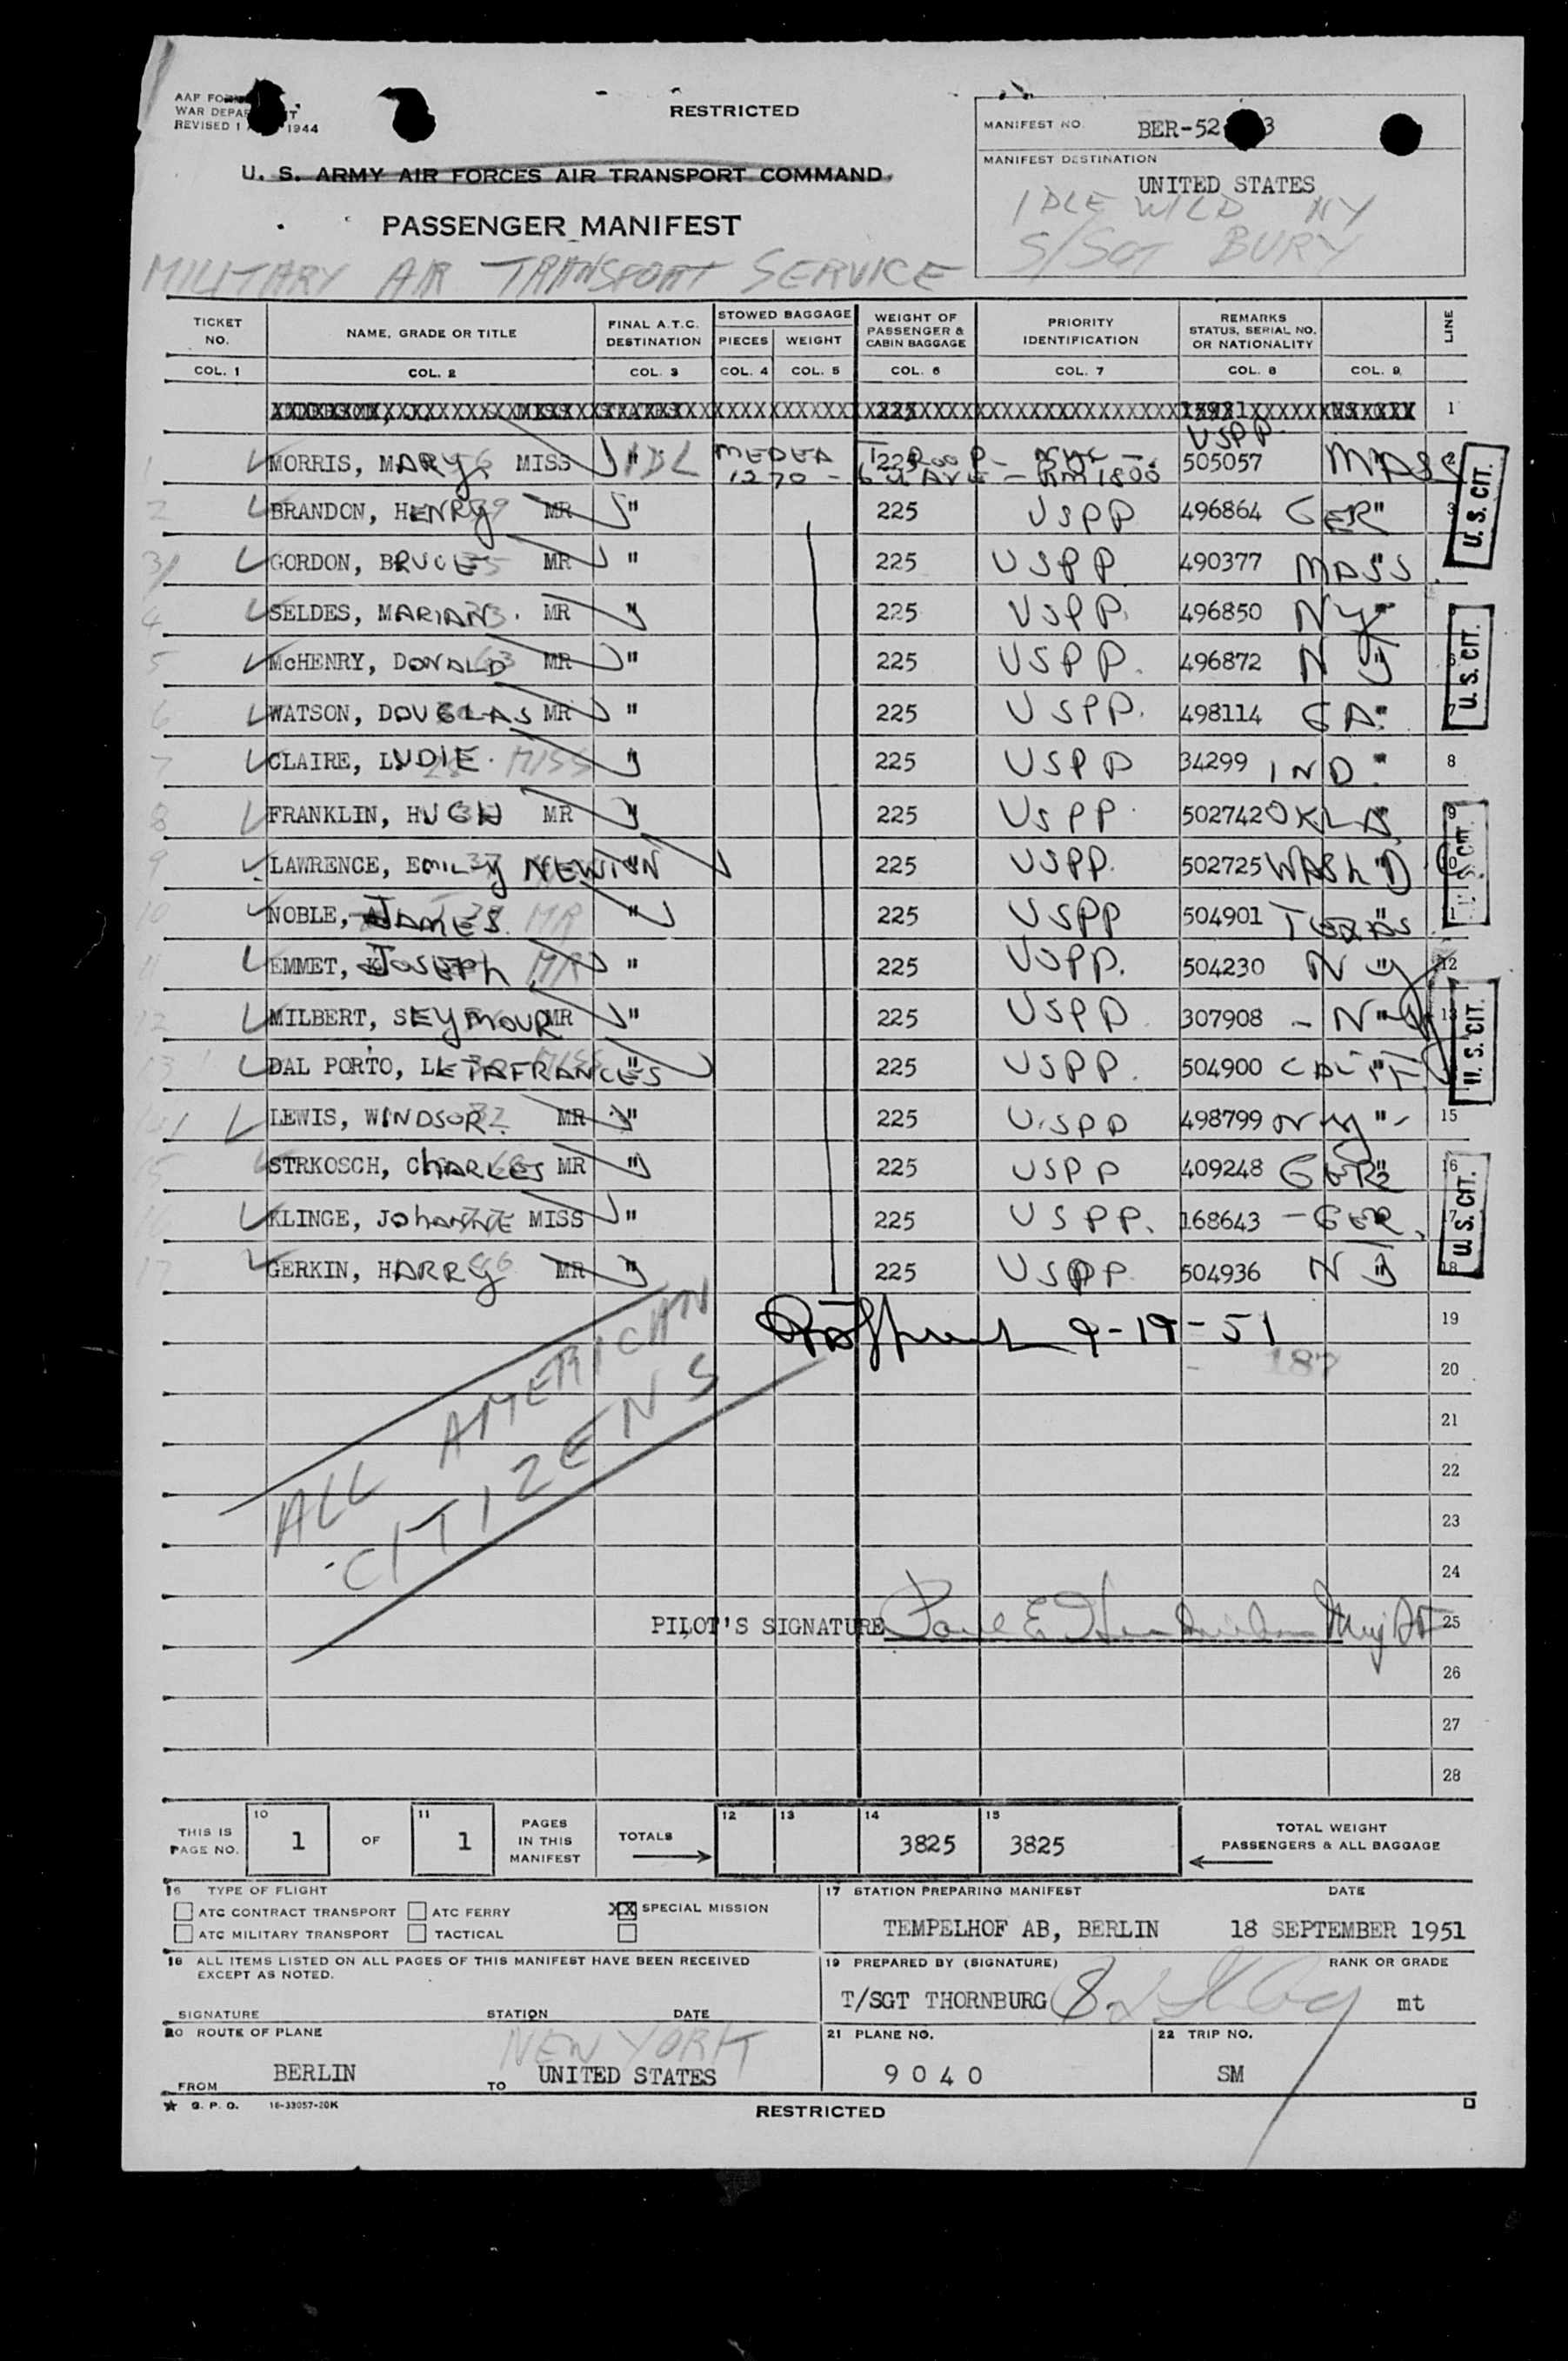 RESTRICTED
WAR
REVISED 1 1944
U. S. ARMY AIR FORCES AIR TRANSPORT COMMAND.
PASSENGER MANIFEST
MILITARY AIR TRANSPORT SERVICE
MANIFEST NO. BER-52 3
MANIFEST DESTINATION
UNITED STATES
IDLE WILD NY
S/SGT BURY
TICKET NO. NAME, GRADE OR TITLE FINAL A.T.C. DESTINATION STOWED BAGGAGE PIECES WEIGHT WEIGHT OF PASSENGER & CABIN BAGGAGE PRIORITY IDENTIFICATION REMARKS STATUS, SERIAL NO. OR NATIONALITY LINE
COL. 1 COL. 2 COL. 3 COL. 4 COL. 5 COL. 6 COL. 7 COL. 8 COL. 9
1
USPP
1 MORRIS, MARY MISS " IDL MEDEA TROOP - 225 505057 MASS 2
1270 - 6th AVE - RM 1800
2 BRANDON, HENRY MR " 225 USPP 496864 GER " 3
3 GORDON, BRUCE MR " 225 USPP 490377 MASS "
4 SELDES, MARIAN MR " 225 USPP 496850 NY "
5 McHENRY, DONALD MR " 225 USPP. 496872 NJ " 6
6 WATSON, DOUGLAS MR " 225 USPP. 498114 GA. " 7
7 CLAIRE, LUDIE. MISS " 225 USPP 34299 IND. " 8
8 FRANKLIN, HUGH MR " 225 USPP 502742 OKLA " 9
9 LAWRENCE, EMILY NEWTON " 225 USPP. 502725 WASH D C " 10
10 NOBLE, JAMES. MR " 225 USPP 504901 TEXAS " 11
11 EMMET, JOSEPH MR " 225 USPP. 504230 NY " 12
12 MILBERT, SEYMOUR MR " 225 USPP 307908 - NY " 13
13 DAL PORTO, LETAFRANCES MISS " 225 USPP. 504900 CALIF "
LEWIS, WINDSOR MR " 225 USPP 498799 NY " 15
15 STRKOSCH, CHARLES MR " 225 USPP 409248 GER " 16
16 KLINGE, JOHANNE MISS " 225 USPP. 168643 - GER. 17
17 GERKIN, HARRY MR " 225 USPP 504936 NJ " 18
U. S. CIT.
U. S. CIT.
U. S. CIT.
U. S. CIT.
U. S. CIT.
9-19-51 19
187 20
ALL AMERICAN
CITIZENS
21
22
23
24
PILOT'S SIGNATURE Paul E Maj 25
26
27
28
THIS IS PAGE NO. 10 1 OF 11 1 PAGES IN THIS MANIFEST TOTALS 12 13 14 3825 15 3825 TOTAL WEIGHT PASSENGERS & ALL BAGGAGE
16 TYPE OF FLIGHT
ATC CONTRACT TRANSPORT ATC FERRY XX SPECIAL MISSION
ATC MILITARY TRANSPORT TACTICAL
17 STATION PREPARING MANIFEST DATE
TEMPELHOF AB, BERLIN 18 SEPTEMBER 1951
18 ALL ITEMS LISTED ON ALL PAGES OF THIS MANIFEST HAVE BEEN RECEIVED
EXCEPT AS NOTED.
SIGNATURE STATION DATE
19 PREPARED BY (SIGNATURE) RANK OR GRADE
T/SGT THORNBURG mt
20 ROUTE OF PLANE
NEW YORK
FROM BERLIN TO UNITED STATES
21 PLANE NO.
9 0 4 0
22 TRIP NO.
SM
G. P. O. 16-33057-20K
RESTRICTED